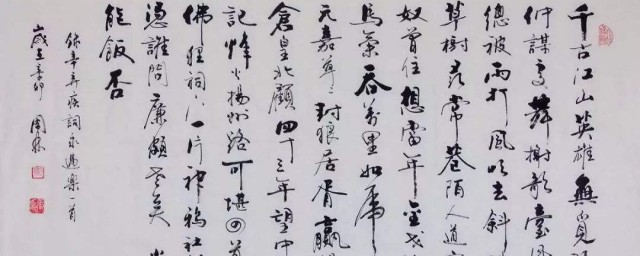 千古江山英雄無覓
仲謀處舞榭歌臺風
總被雨打風吹去斜
草樹尋常巷陌人道
奴曾住想當年金戈
馬氣吞萬里如虎
元嘉草草封狼居胥贏
倉皇北顧四十三年望中
記烽火揚州路可堪回首
佛狸祠下一片神鴉社
憑誰問廉頗老矣尚
能飯否
錄辛弃疾詞永遇樂一首
歲在辛卯 周